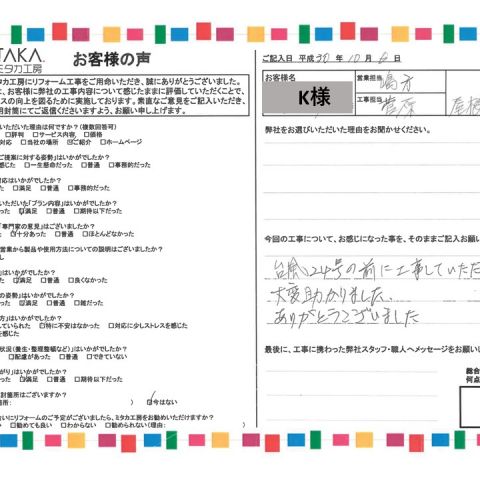 TAKA.
ミタカ工房
お客様の声
タカ工房にリフォーム工事をご用命いただき、誠にありがとうございました。
は、お客様に弊社の工事内容について感じたままに評価していただくことで、
スの向上を図るために実施しております。素直なご意見をご記入いただき、
用封筒にてご返信くださいますよう、お願い申し上げます。
いただいた理由は何ですか？(複数回答可)
□評判 □サービス内容 □価格
対応 □当社の場所 ☑ご紹介 □ホームページ
ご提案に対する姿勢」はいかがでしたか？
た □一生懸命だった □普通 □事務的だった
対応はいかがでしたか？
□満足 □普通 □事務的だった
いただいた「プラン内容」はいかがでしたか？
った ☑満足 □普通 □期待以下だった
「専門家の意見」はございましたか？
た ☑十分あった □普通 □ほとんどなかった
営業から製品や使用方法についての説明はございましたか？
」はいかがでしたか？
った □満足 □普通 □良くなかった
」はいかがでしたか？
った ☑満足 □普通 □雑だった
方」はいかがでしたか？
していられた □特に不安はなかった □対応に少しストレスを感じた
を感じた
状況(養生・整理整頓など)」はいかがでしたか？
□配慮があった □普通 □できていない
がり」はいかがでしたか？
った ☑満足 □普通 □期待以下だった
討箇所はございますか？
箇所： ) ☑今はない
合いにリフォームのご予定がございましたら、ミタカ工房をお勧めいただけますか？
い □勧めても良い □わからない □勧められない(理由：
ご記入日 平成 30 年 10 月 6 日
お客様名
K様
営業担当
工事担当 菅原
屋根
弊社をお選びいただいた理由をお聞かせください。
今回の工事について、お感じになった事を、そのままご記入お願い
台風24号の前に工事していただ
大変助かりました、
ありがとうございました
最後に、工事に携わった弊社スタッフ・職人へメッセージをお願いし
総合
何点